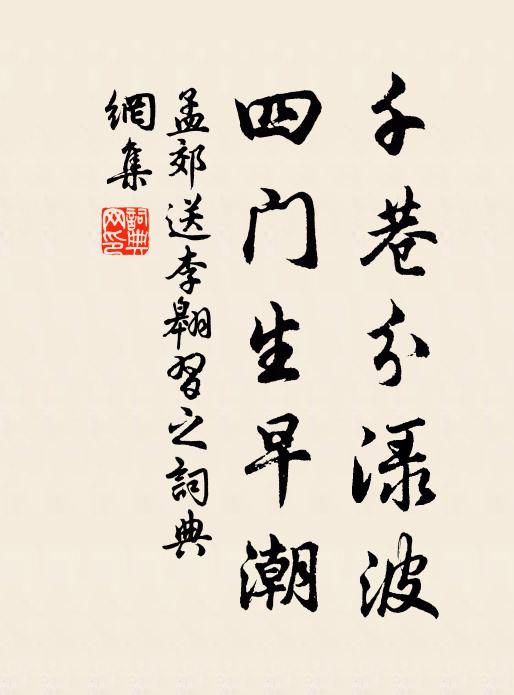 千巷分渌波
四门生早潮
孟郊送李翱習之詞典
網集
詞典網印